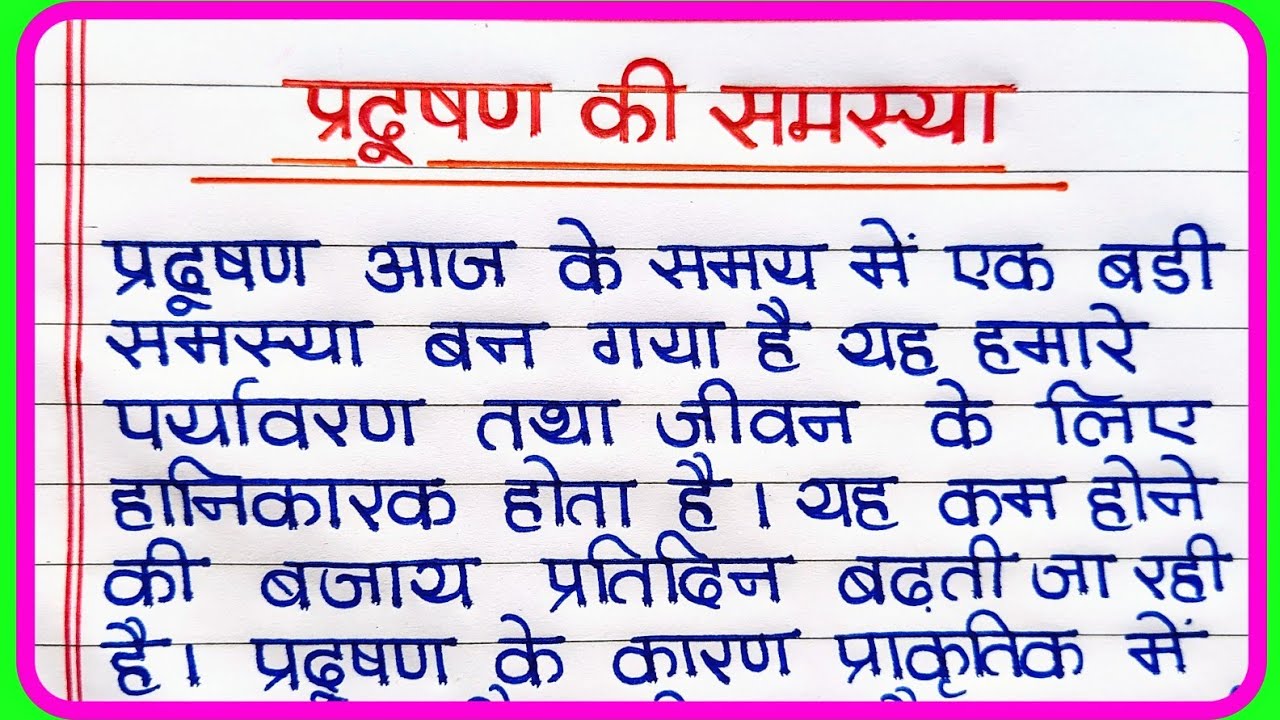 प्रदूषण की समस्या
प्रदूषण आज के समय में एक बडी
समस्या बन गया है यह हमारे
पर्यावरण तथा जीवन के लिए
हानिकारक होता है। यह कम होने
की बजाय प्रतिदिन बढ़ती जा रही
है। प्रदूषण के कारण प्राकृतिक में